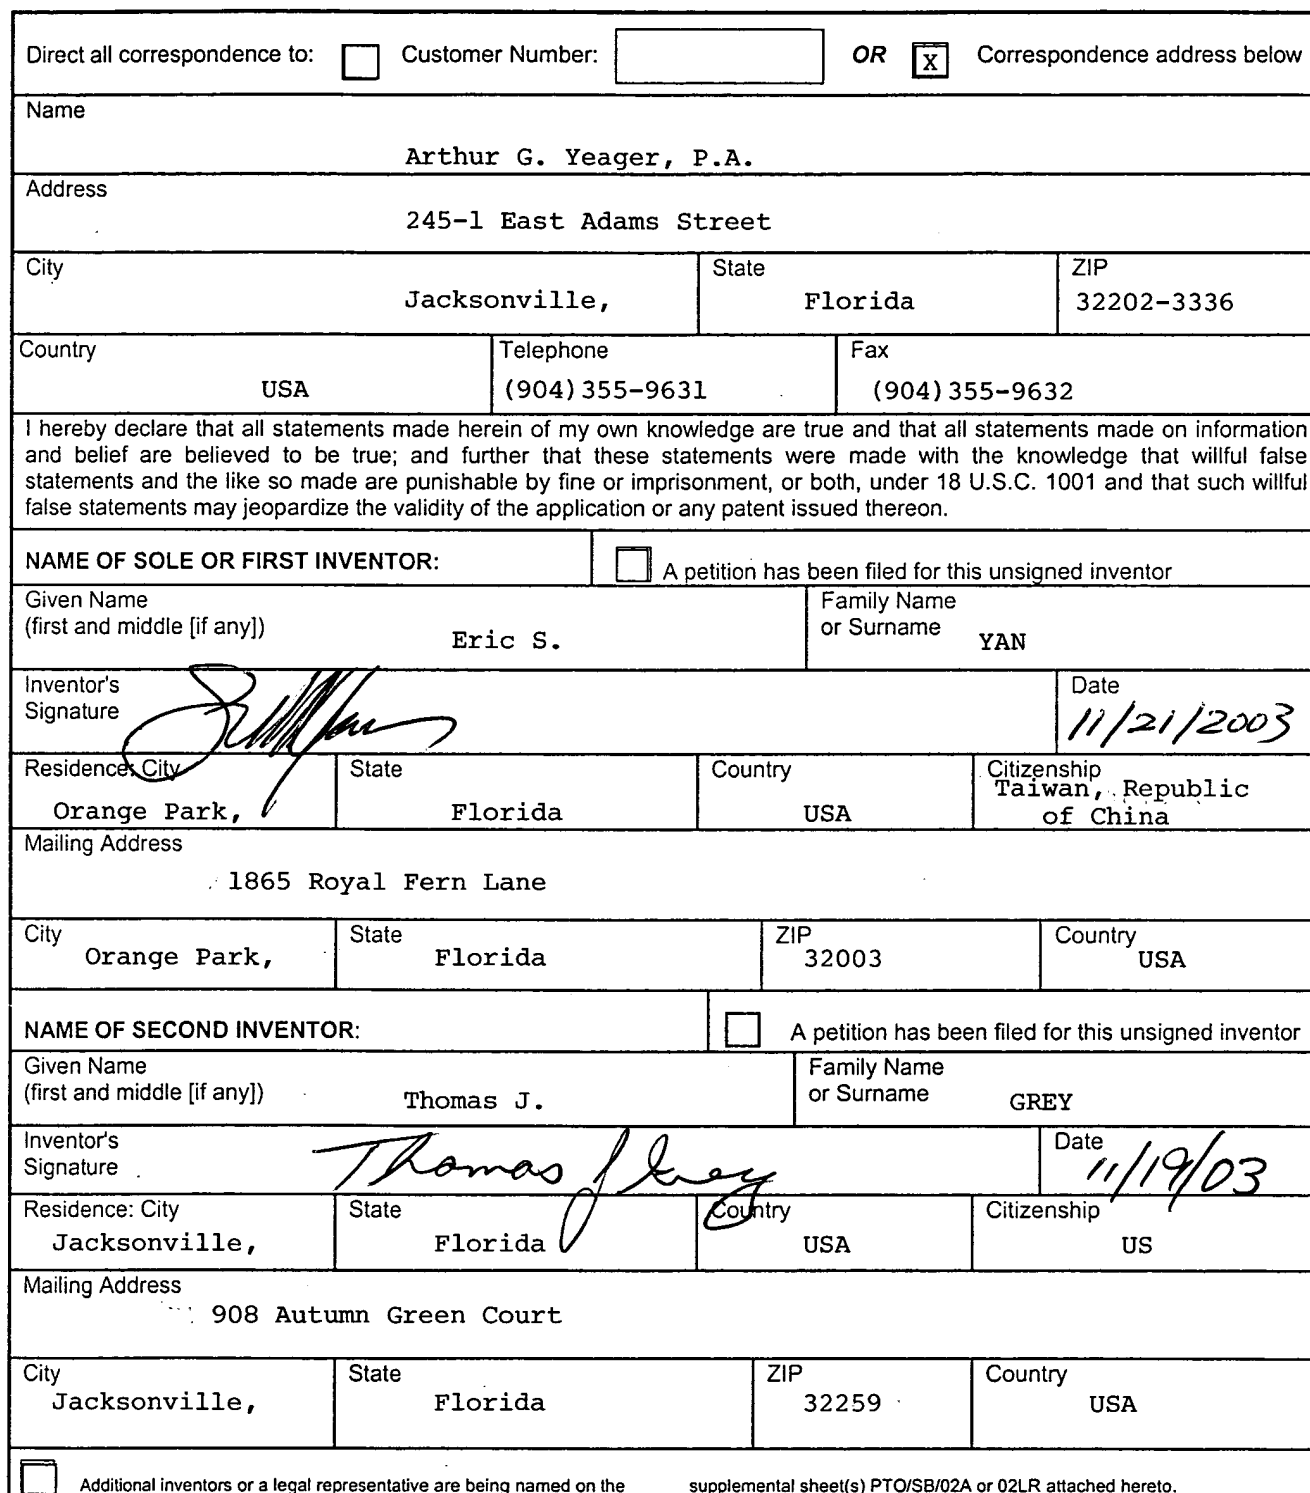 Direct all correspondence to: Customer Number: OR X Correspondence address below
Name
Arthur G. Yeager, P.A.
Address
245-1 East Adams Street
City State ZIP
Jacksonville, Florida 32202-3336
Country Telephone Fax
USA (904)355-9631 (904)355-9632
I hereby declare that all statements made herein of my own knowledge are true and that all statements made on information
and belief are believed to be true; and further that these statements were made with the knowledge that willful false
statements and the like so made are punishable by fine or imprisonment, or both, under 18 U.S.C. 1001 and that such willful
false statements may jeopardize the validity of the application or any patent issued thereon.
NAME OF SOLE OR FIRST INVENTOR: A petition has been filed for this unsigned inventor
Given Name Family Name
(first and middle [if any]) Eric S. or Surname YAN
Inventor's Date
Signature 11/21/2003
Residence: City State Country Citizenship
Orange Park, Florida USA Taiwan, Republic
of China
Mailing Address
1865 Royal Fern Lane
City State ZIP Country
Orange Park, Florida 32003 USA
NAME OF SECOND INVENTOR: A petition has been filed for this unsigned inventor
Given Name Family Name
(first and middle [if any]) Thomas J. or Surname GREY
Inventor's Date
Signature Thomas J Grey 11/19/03
Residence: City State Country Citizenship
Jacksonville, Florida USA US
Mailing Address
908 Autumn Green Court
City State ZIP Country
Jacksonville, Florida 32259 USA
Additional inventors or a legal representative are being named on the supplemental sheet(s) PTO/SB/02A or 02LR attached hereto.